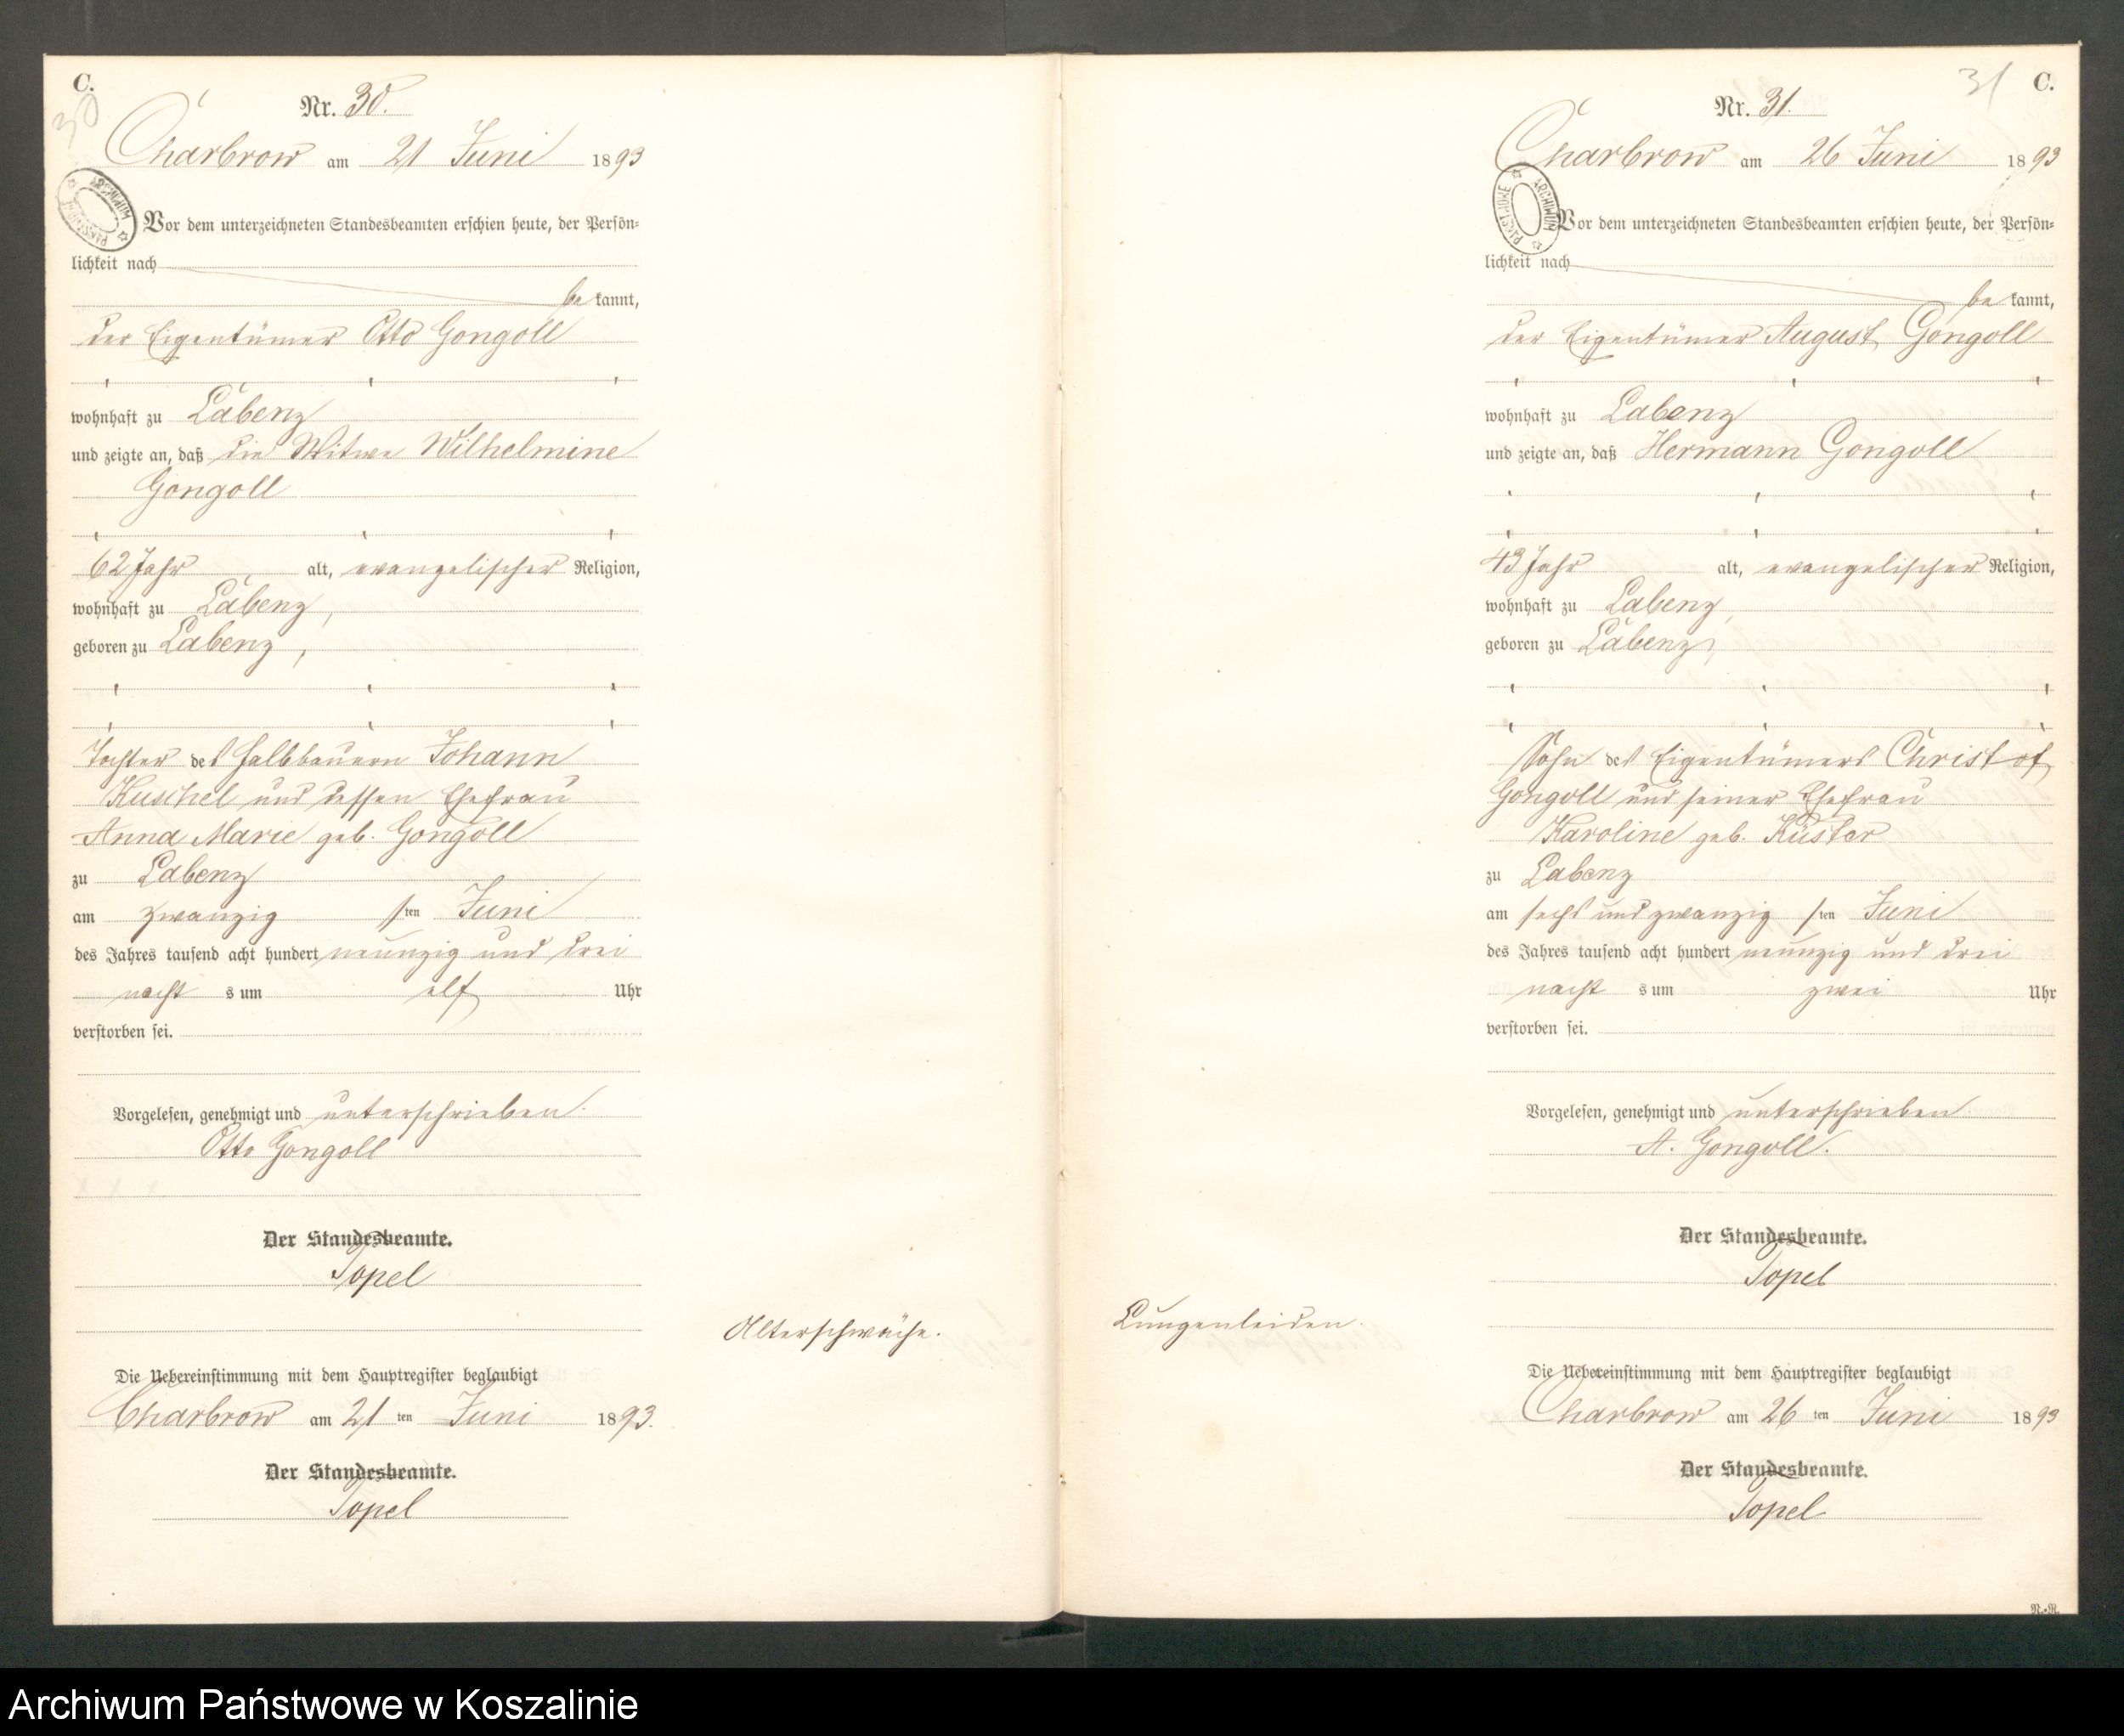 C.
30
Nr. 30.
Charbrow am 21 Juni 1893
ARCHIWUM PAŃSTWOWE
Vor dem unterzeichneten Standesbeamten erschien heute, der Persön=
lichkeit nach
be kannt,
der Eigentümer Otto Gongoll
wohnhaft zu Labenz
und zeigte an, daß die Witwe Wilhelmine
Gongoll
62 Jahr alt, evangelischer Religion,
wohnhaft zu Labenz,
geboren zu Labenz,
Tochter des Halbbauern Johann
Kuschel und dessen Ehefrau
Anna Marie geb. Gongoll
zu Labenz
am zwanzig sten Juni
des Jahres tausend acht hundert neunzig und drei
nacht s um elf Uhr
verstorben sei.
Vorgelesen, genehmigt und unterschrieben.
Otto Gongoll
Der Standesbeamte.
Topel
Alterschwäche.
Die Uebereinstimmung mit dem Hauptregister beglaubigt
Charbrow am 21 ten Juni 1893.
Der Standesbeamte.
Topel
31 C.
Nr. 31.
Charbrow am 26 Juni 1893
ARCHIWUM PAŃSTWOWE
Vor dem unterzeichneten Standesbeamten erschien heute, der Persön=
lichkeit nach
be kannt,
der Eigentümer August Gongoll
wohnhaft zu Labenz
und zeigte an, daß Hermann Gongoll
43 Jahr alt, evangelischer Religion,
wohnhaft zu Labenz,
geboren zu Labenz,
Sohn des Eigentümers Christof
Gongoll und seiner Ehefrau
Karoline geb. Küster
zu Labenz
am sechs und zwanzig sten Juni
des Jahres tausend acht hundert neunzig und drei
nacht s um zwei Uhr
verstorben sei.
Vorgelesen, genehmigt und unterschrieben
A. Gongoll.
Der Standesbeamte.
Topel
Lungenleiden.
Die Uebereinstimmung mit dem Hauptregister beglaubigt
Charbrow am 26 ten Juni 1893
Der Standesbeamte.
Topel
R.-R.
Archiwum Państwowe w Koszalinie